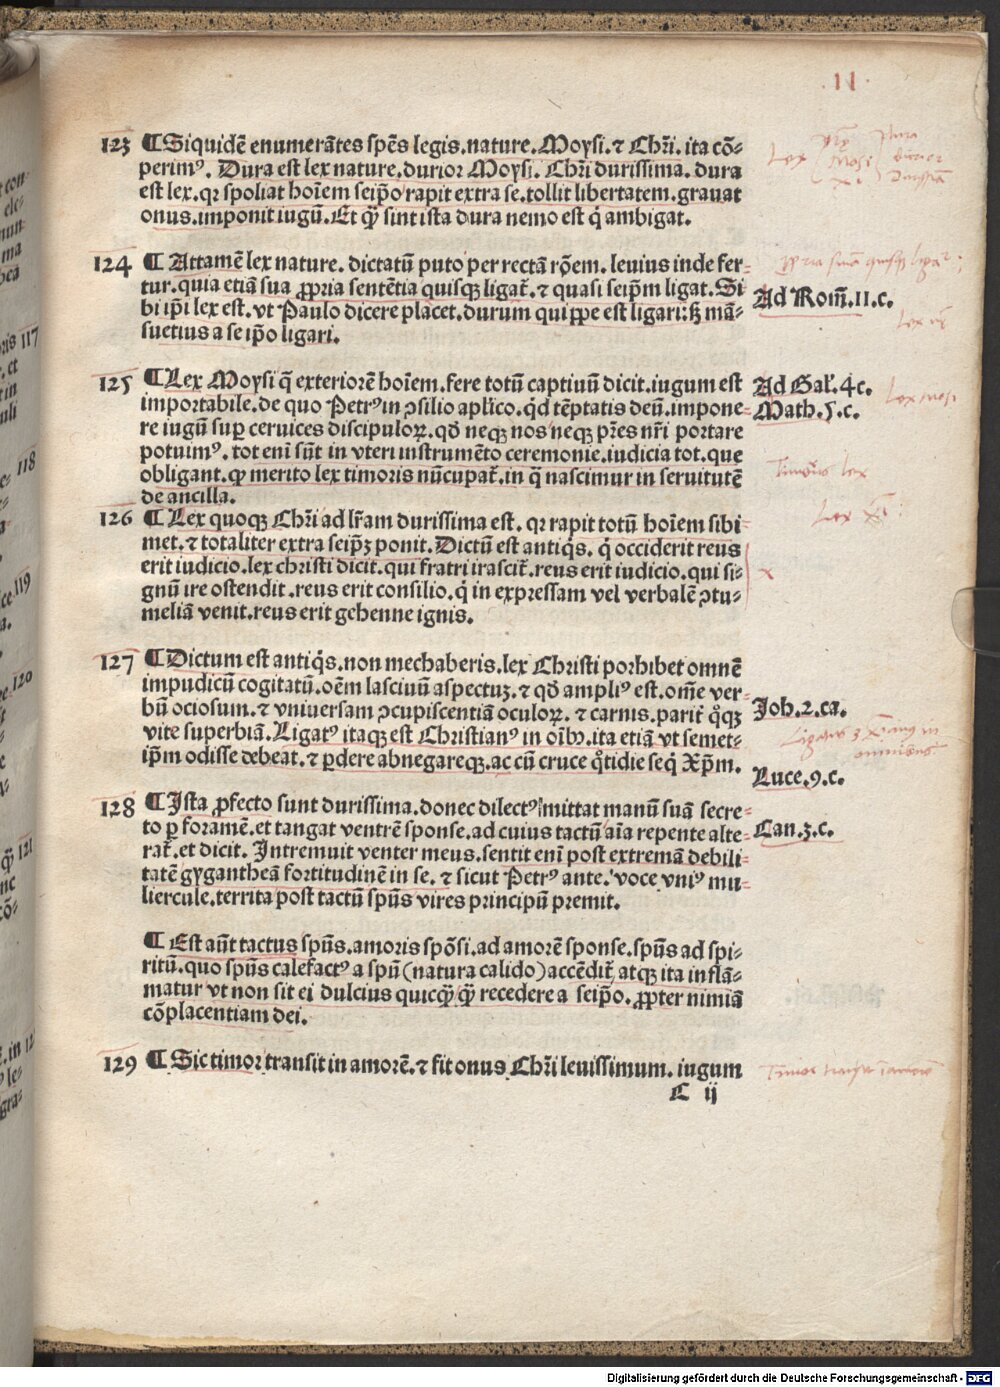 11
123 ¶ Siquidē enumerātes spēs legis. nature. Moysi. ⁊ Chr̄i. ita cō-
perimꝰ. Dura est lex nature. durior Moysi. Chr̄i durissima. dura
est lex. qꝛ spoliat hoīem seip̄o rapit extra se. tollit libertatem. grauat
onus. imponit iugū. Et qꝙ̄ sint ista dura nemo est q̇ ambigat.
124 ¶ Attamē lex nature. dictatū puto per rectā rōem. leuius inde fer-
tur. quia etiā sua ꝓpria sentētia quisqꝫ ligat̄. ⁊ quasi seip̄m ligat. Si
bi ip̄i lex est. vt Paulo dicere placet. durum qui ꝓpe est ligari: sꝫ mā-
suetius a se ip̄o ligari.
Ad Rom̄. 11. c.
125 ¶ Lex Moysi q̄ exteriorē hoīem. fere totū captiuū dicit. iugum est
importabile. de quo Petrꝰ in ꝯsilio apl̄ico. qͥd tēptatis deū. impone-
re iugū suꝑ ceruices discipuloꝝ. qd̄ neqꝫ nos neqꝫ pr̄es nr̄i portare
potuimꝰ. tot enī sūt in vteri instrumēto ceremonie. iudicia tot. que
obligant. qꝙ merito lex timoris nūcupat̄. in q̄ nascimur in seruitutē
de ancilla.
Ad Gal̄. 4c.
Math. 5. c.
Lex moꝫi
Timoris lex
126 ¶ Lex quoqꝫ Chr̄i ad lr̄am durissima est. qꝛ rapit totū hoīem sibi-
met. ⁊ totaliter extra seip̄ꝫ ponit. Dictū est antiqͥs. q̇ occiderit reus
erit iudicio. lex christi dicit. qui fratri irascit̄. reus erit iudicio. qui si-
gnū ire ostendit. reus erit consilio. q̇ in expressam vel verbalē ꝯtu-
meliā venit. reus erit gehenne ignis.
127 ¶ Dictum est antiqͥs. non mechaberis. lex Christi porhibet omnē
impudicū cogitatū. oēm lasciuū aspectuꝫ. ⁊ qd̄ ampliꝰ est. om̄e ver-
bū ociosum. ⁊ vniuersam ꝯcupiscentiā oculoꝝ. ⁊ carnis. parit̄ qͦqꝫ
vite superbiā. Ligatꝰ itaqꝫ est Christianꝰ in oībꝫ. ita etiā vt semet-
ip̄m odisse debeat. ⁊ ꝑdere abnegareqꝫ. ac cū cruce qͦtidie seq̇ Xp̄m.
Joh. 2. ca.
Luce. 9. c.
128 ¶ Ista ꝓfecto sunt durissima. donec dilectꝰ mittat manū suā secre-
to ꝑ foramē. et tangat ventrē sponse. ad cuius tactū aīa repente alte-
rat̄. et dicit. Intremuit venter meus. sentit enī post extremā debili-
tatē gygantheā fortitudinē in se. ⁊ sicut Petrꝰ ante. voce vniꝰ mu-
liercule. territa post tactū spūs vires principū premit.
Can. 3. c.
¶ Est aūt tactus spūs. amoris spōsi. ad amorē sponse. spūs ad spi-
ritū. quo spūs calefactꝰ a spū (natura calido) accēdit̄. atqꝫ ita inflā-
matur vt non sit ei dulcius quicqꝙ̄ qꝙ̄ recedere a seip̄o. ꝓpter nimiā
cōplacentiam dei.
129 ¶ Sic timor transit in amorē. ⁊ fit onus Chr̄i leuissimum. iugum
C ij
Digitalisierung gefördert durch die Deutsche Forschungsgemeinschaft - DFG